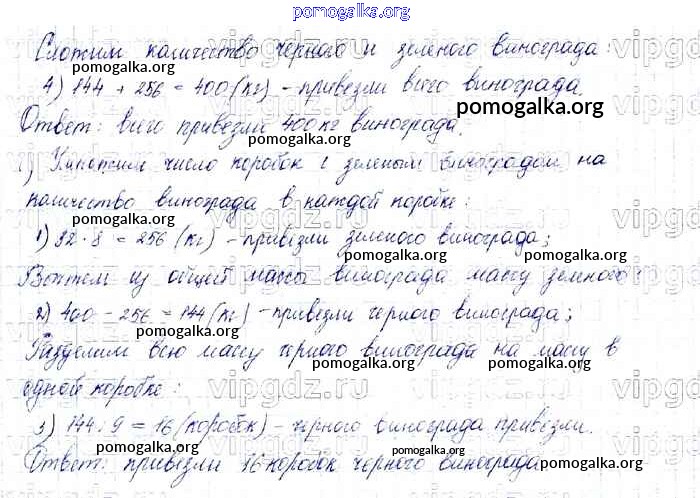 pomogalka.org
Сложим количество черного и зеленого винограда:
pomogalka.org
4) 144 + 256 = 400 (кг) - привезли всего винограда.
pomogalka.org
Ответ: всего привезли 400 кг винограда.
pomogalka.org
1) Умножим число коробок с зеленым виноградом на
количество винограда в каждой коробке:
pomogalka.org
1) 32 · 8 = 256 (кг) - привезли зеленого винограда;
pomogalka.org pomogalka.org
Вычтем из общей массы винограда массу зеленого:
2) 400 - 256 = 144 (кг) - привезли черного винограда;
pomogalka.org pomogalka.org
Разделим всю массу черного винограда на массу в
одной коробке:
vipgdz.ru
3) 144 : 9 = 16 (коробок) - черного винограда привезли.
pomogalka.org pomogalka.org
Ответ: привезли 16 коробок черного винограда
pomogalka.org pomogalka.org